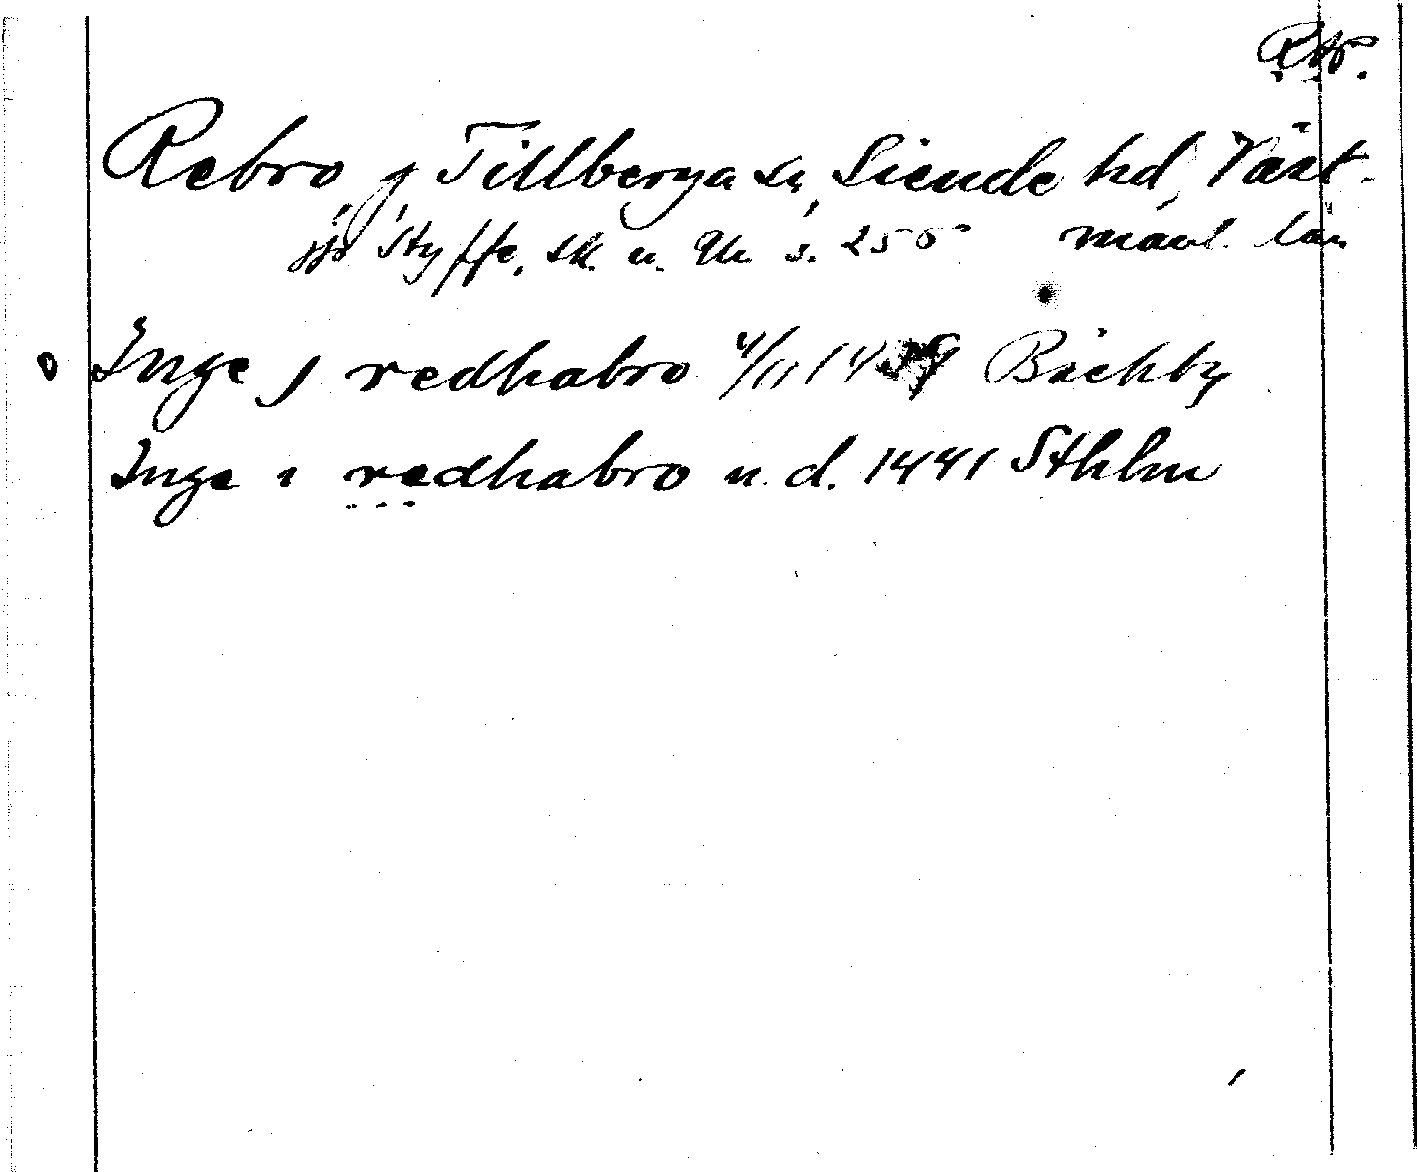 Rebro, j Tillberga sn, Siende hd, Väst-
jfr Styffe, Sk. u. Un. s. 255 manl. län
Inge j redhabro 4/11 14 Bächby
Inge i redhabro u. d. 1441 Sthlm